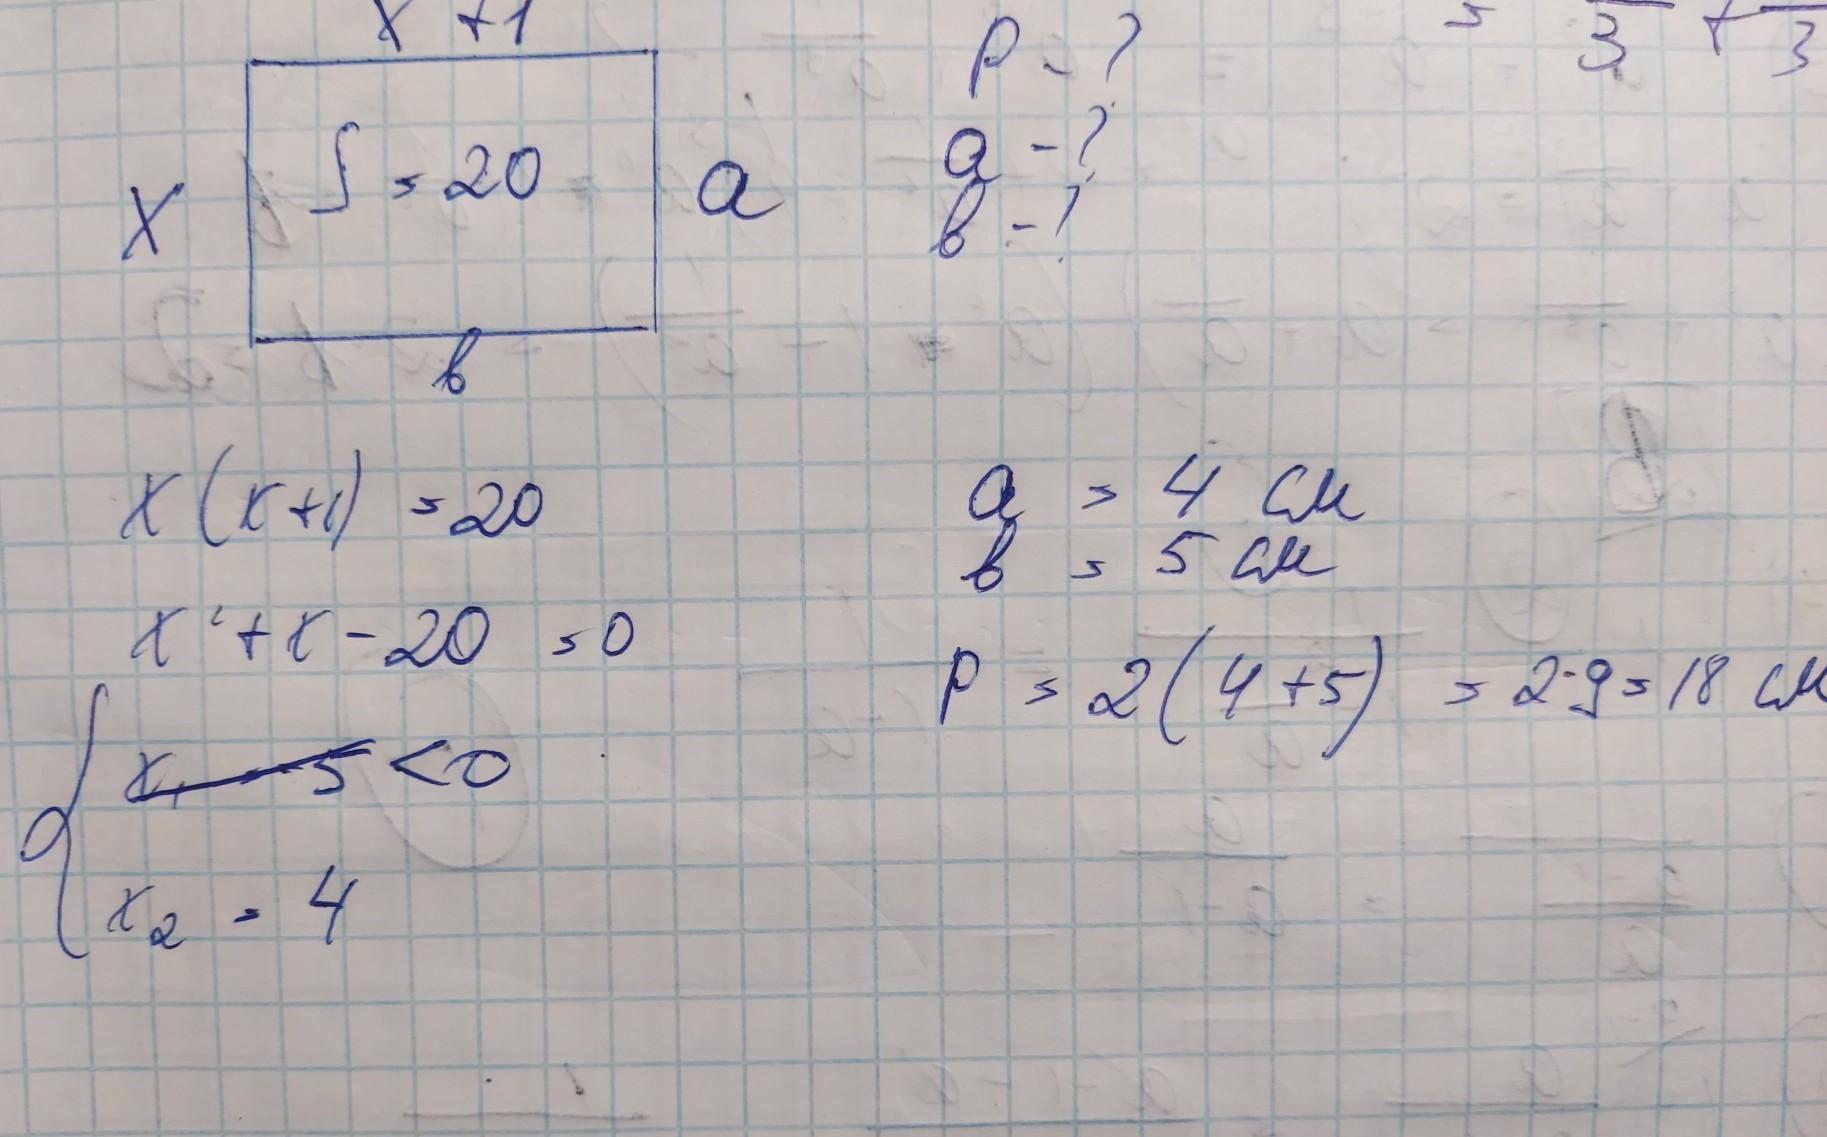 x + 1
S = 20
x
a
в
P - ?
a - ?
в - ?
= 3 + 3
x(x+1) = 20
x² + x - 20 = 0
x₁ = -5 < 0
x₂ = 4
a = 4 см
в = 5 см
P = 2(4+5) = 2·9 = 18 см